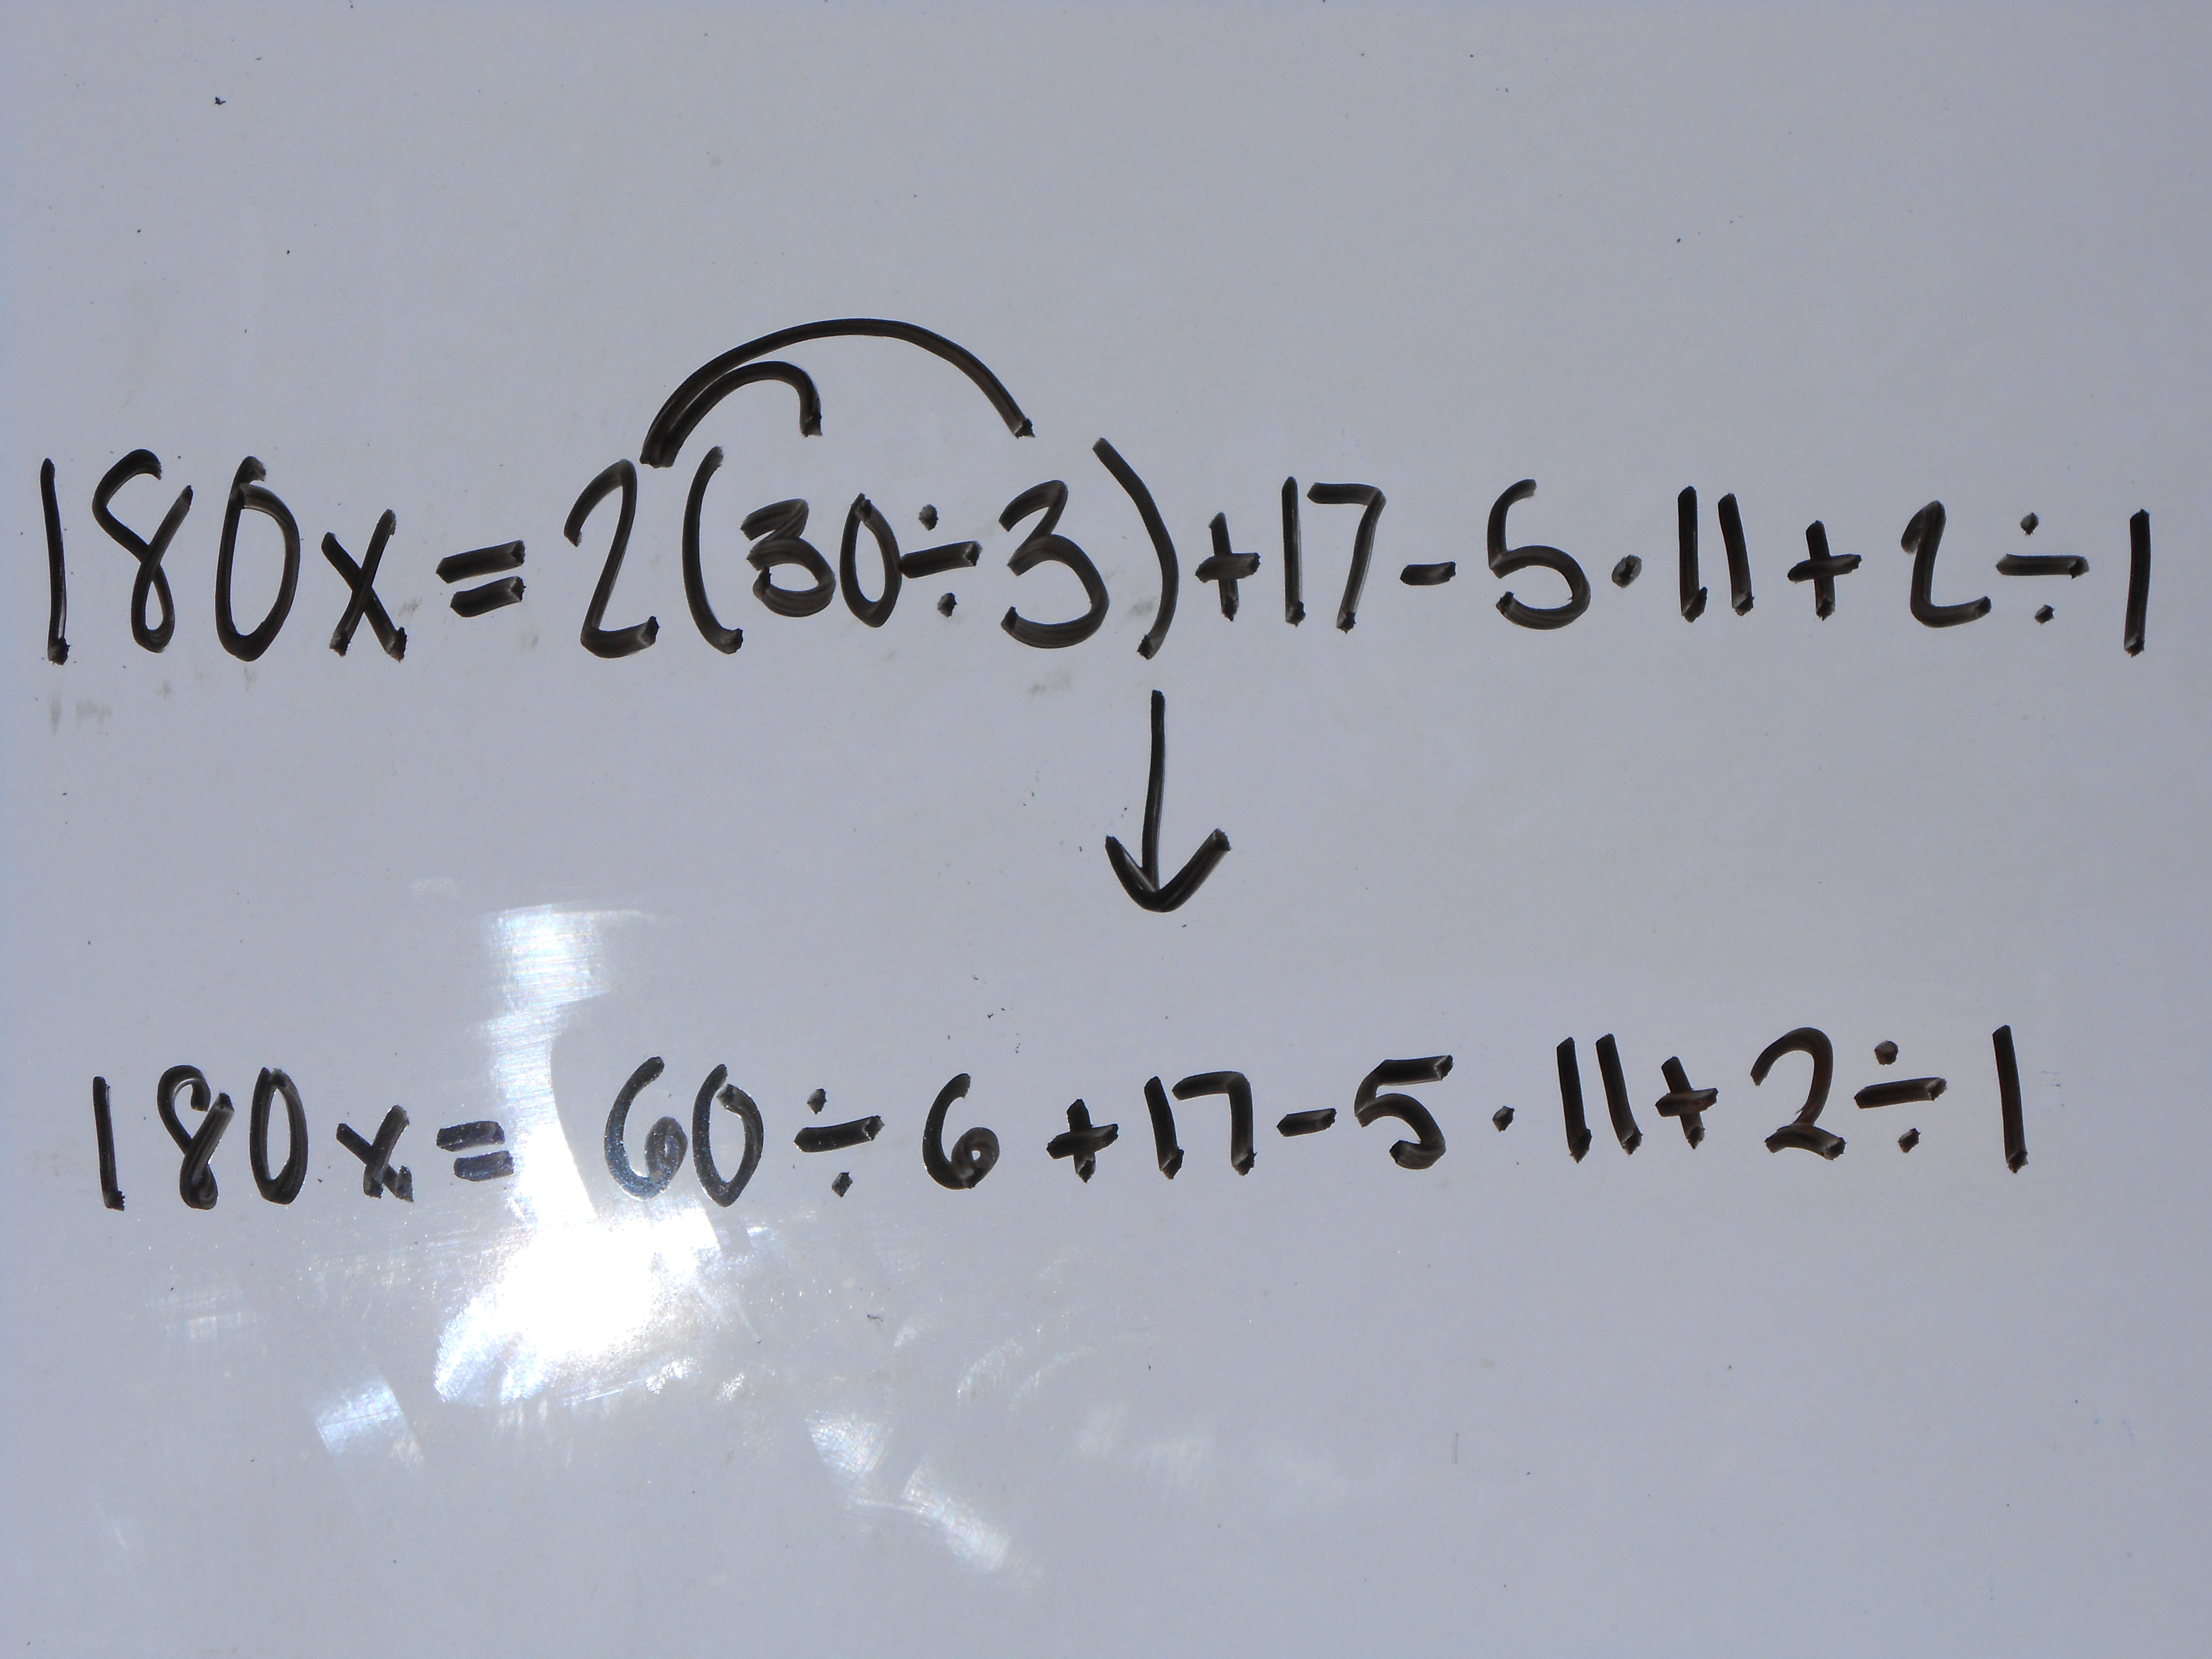 180x=2(30÷3)+17-5·11+2÷1
180x=60÷6+17-5·11+2÷1